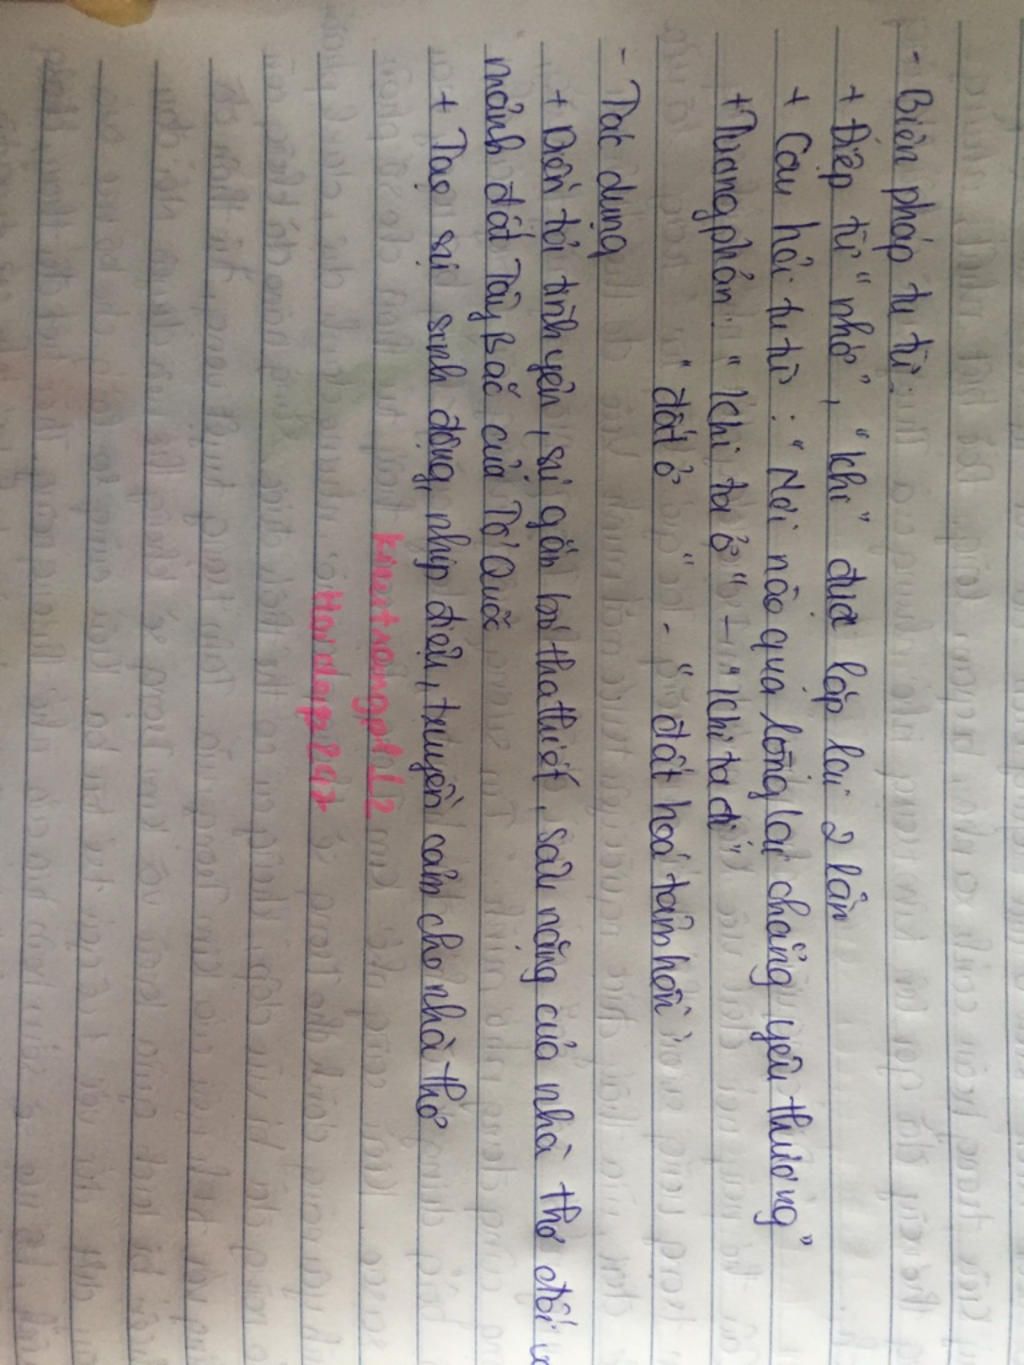 - Biện pháp tu từ:
+ Điệp từ "nhớ", "khi" được lặp lại 2 lần
+ Câu hỏi tu từ: "Nơi nào qua lòng lại chẳng yêu thương"
+ Tương phản: "khi ta ở" - "khi ta đi"
"đất ở" - "đất hoá tâm hồn
- Tác dụng
+ Diễn tả tình yêu, sự gắn bó tha thiết, sâu nặng của nhà thơ đối
mảnh đất Tây Bắc của Tổ Quốc
+ Tạo sự sinh động, nhịp điệu, truyền cảm cho nhà thơ
Hoidap247